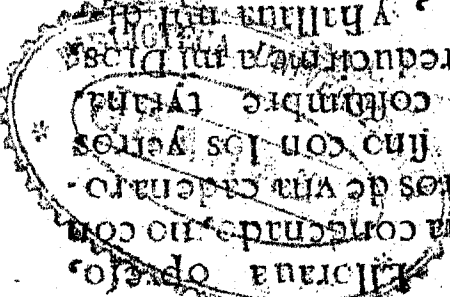 Lloraua opreſo,
a condenado, no con
ros de vna cadena ro-
ſino con los yerros
coſtumbre tyrana
reducirme a mi Dios
, y hallaua mil di